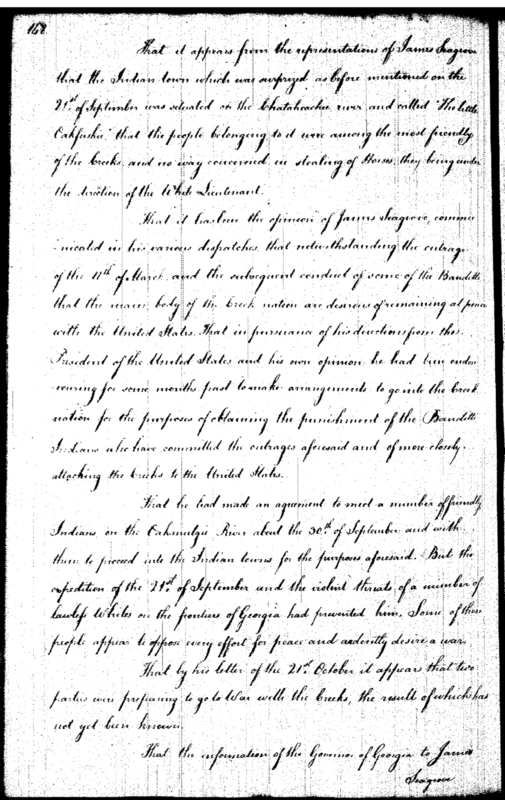 168
That it appears from the representations of James Seagrove
that the Indian town which was surprized as before mentioned on the
21st of September was situated on the Chatahoochee river and called "The little
Oakfuskie" that the people belonging to it were among the most friendly
of the Creeks, and no way concerned in stealing of Horses, they being under
the direction of the White Lieutenant.
That it has been the opinion of James Seagrove, commu
nicated in his various dispatches, that notwithstanding the outrage
of the 11th of March and the subsequent conduct of some of the Banditti
that the main body of the Creek nation are desirous of remaining at peace
with the United States. That in pursuance of his directions from the
President of the United States and his own opinion he had been endea
vouring for some months past to make arrangements to go into the Creek
nation for the purposes of obtaining the punishment of the Banditti
Indians who have committed the outrages aforesaid and of more closely
attaching the Creeks to the United States.
That he had made an agreement to meet a number of friendly
Indians on the Oakmulgie River about the 30th of September and with
them to proceed into the Indian towns for the purposes aforesaid. But the
expedition of the 21st of September and the violent threats of a number of
lawless Whites on the frontiers of Georgia had prevented him. Some of these
people appear to oppose every effort for peace and ardently desire a war.
That by his letter of the 21st October it appears that two
parties were preparing to go to War with the Creeks, the result of which has
not yet been known.
That the information of the Governor of Georgia to James
Seagrove